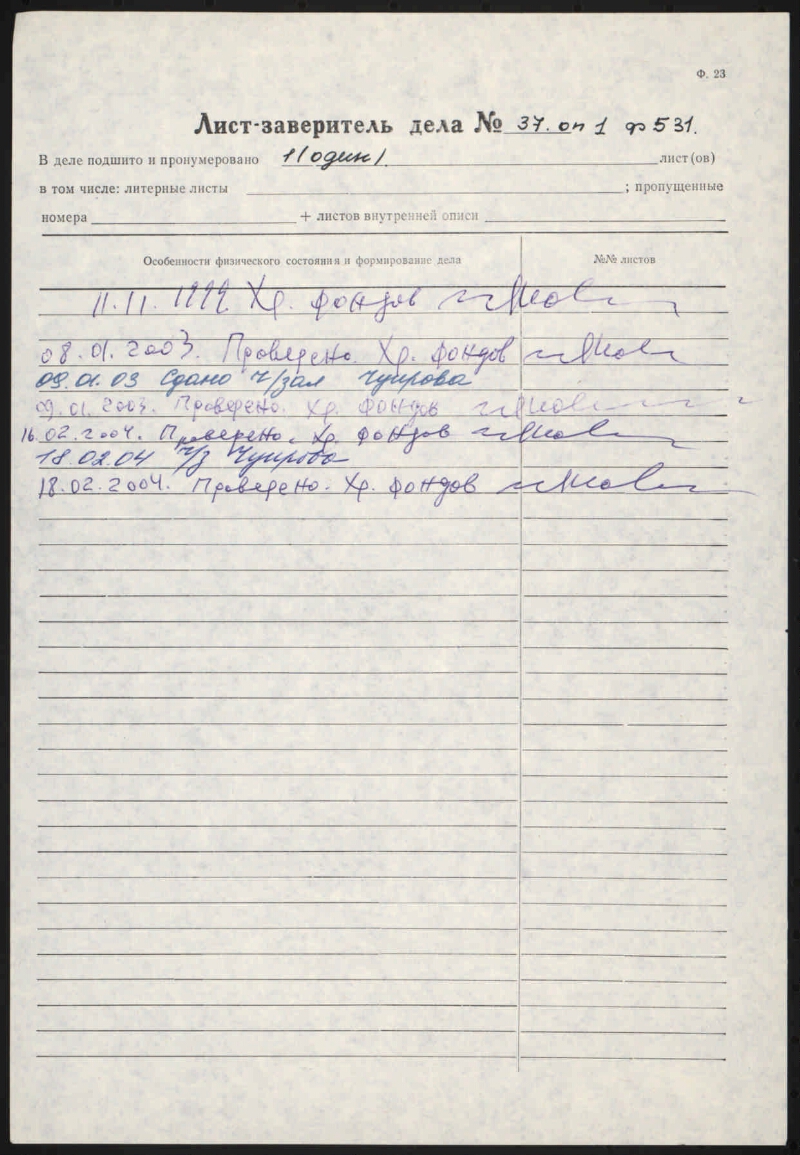 Ф. 23
Лист-заверитель дела № 37. оп 1 ф 531.
В деле подшито и пронумеровано 1 (один) лист(ов)
в том числе: литерные листы ; пропущенные
номера + листов внутренней описи
Особенности физического состояния и формирование дела №№ листов
11.11.1999 Хр. фондов
08.01.2003. Проверено. Хр. фондов
09.01.03 Сдано ч/зал
09.01.2003. Проверено. Хр. фондов
16.02.2004. Проверено. Хр. фондов
18.02.04 ч/з
18.02.2004. Проверено. Хр. фондов